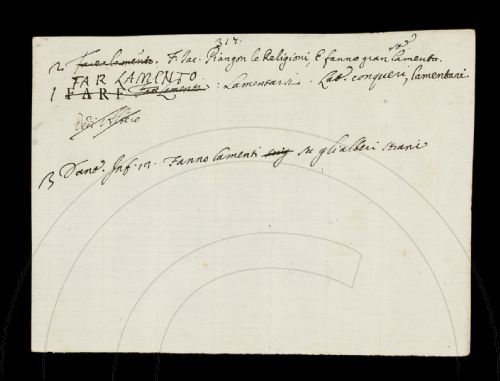 317.
2. Far lamento. F. Iac. Piangon le Religioni, E fanno gran lamento.
FAR LAMENTO.
1 FARE Far lamento : Lamentarsi. Lat. conqueri, lamentari.
3 Dant. Inf. 13. Fanno lamenti su gli alberi strani